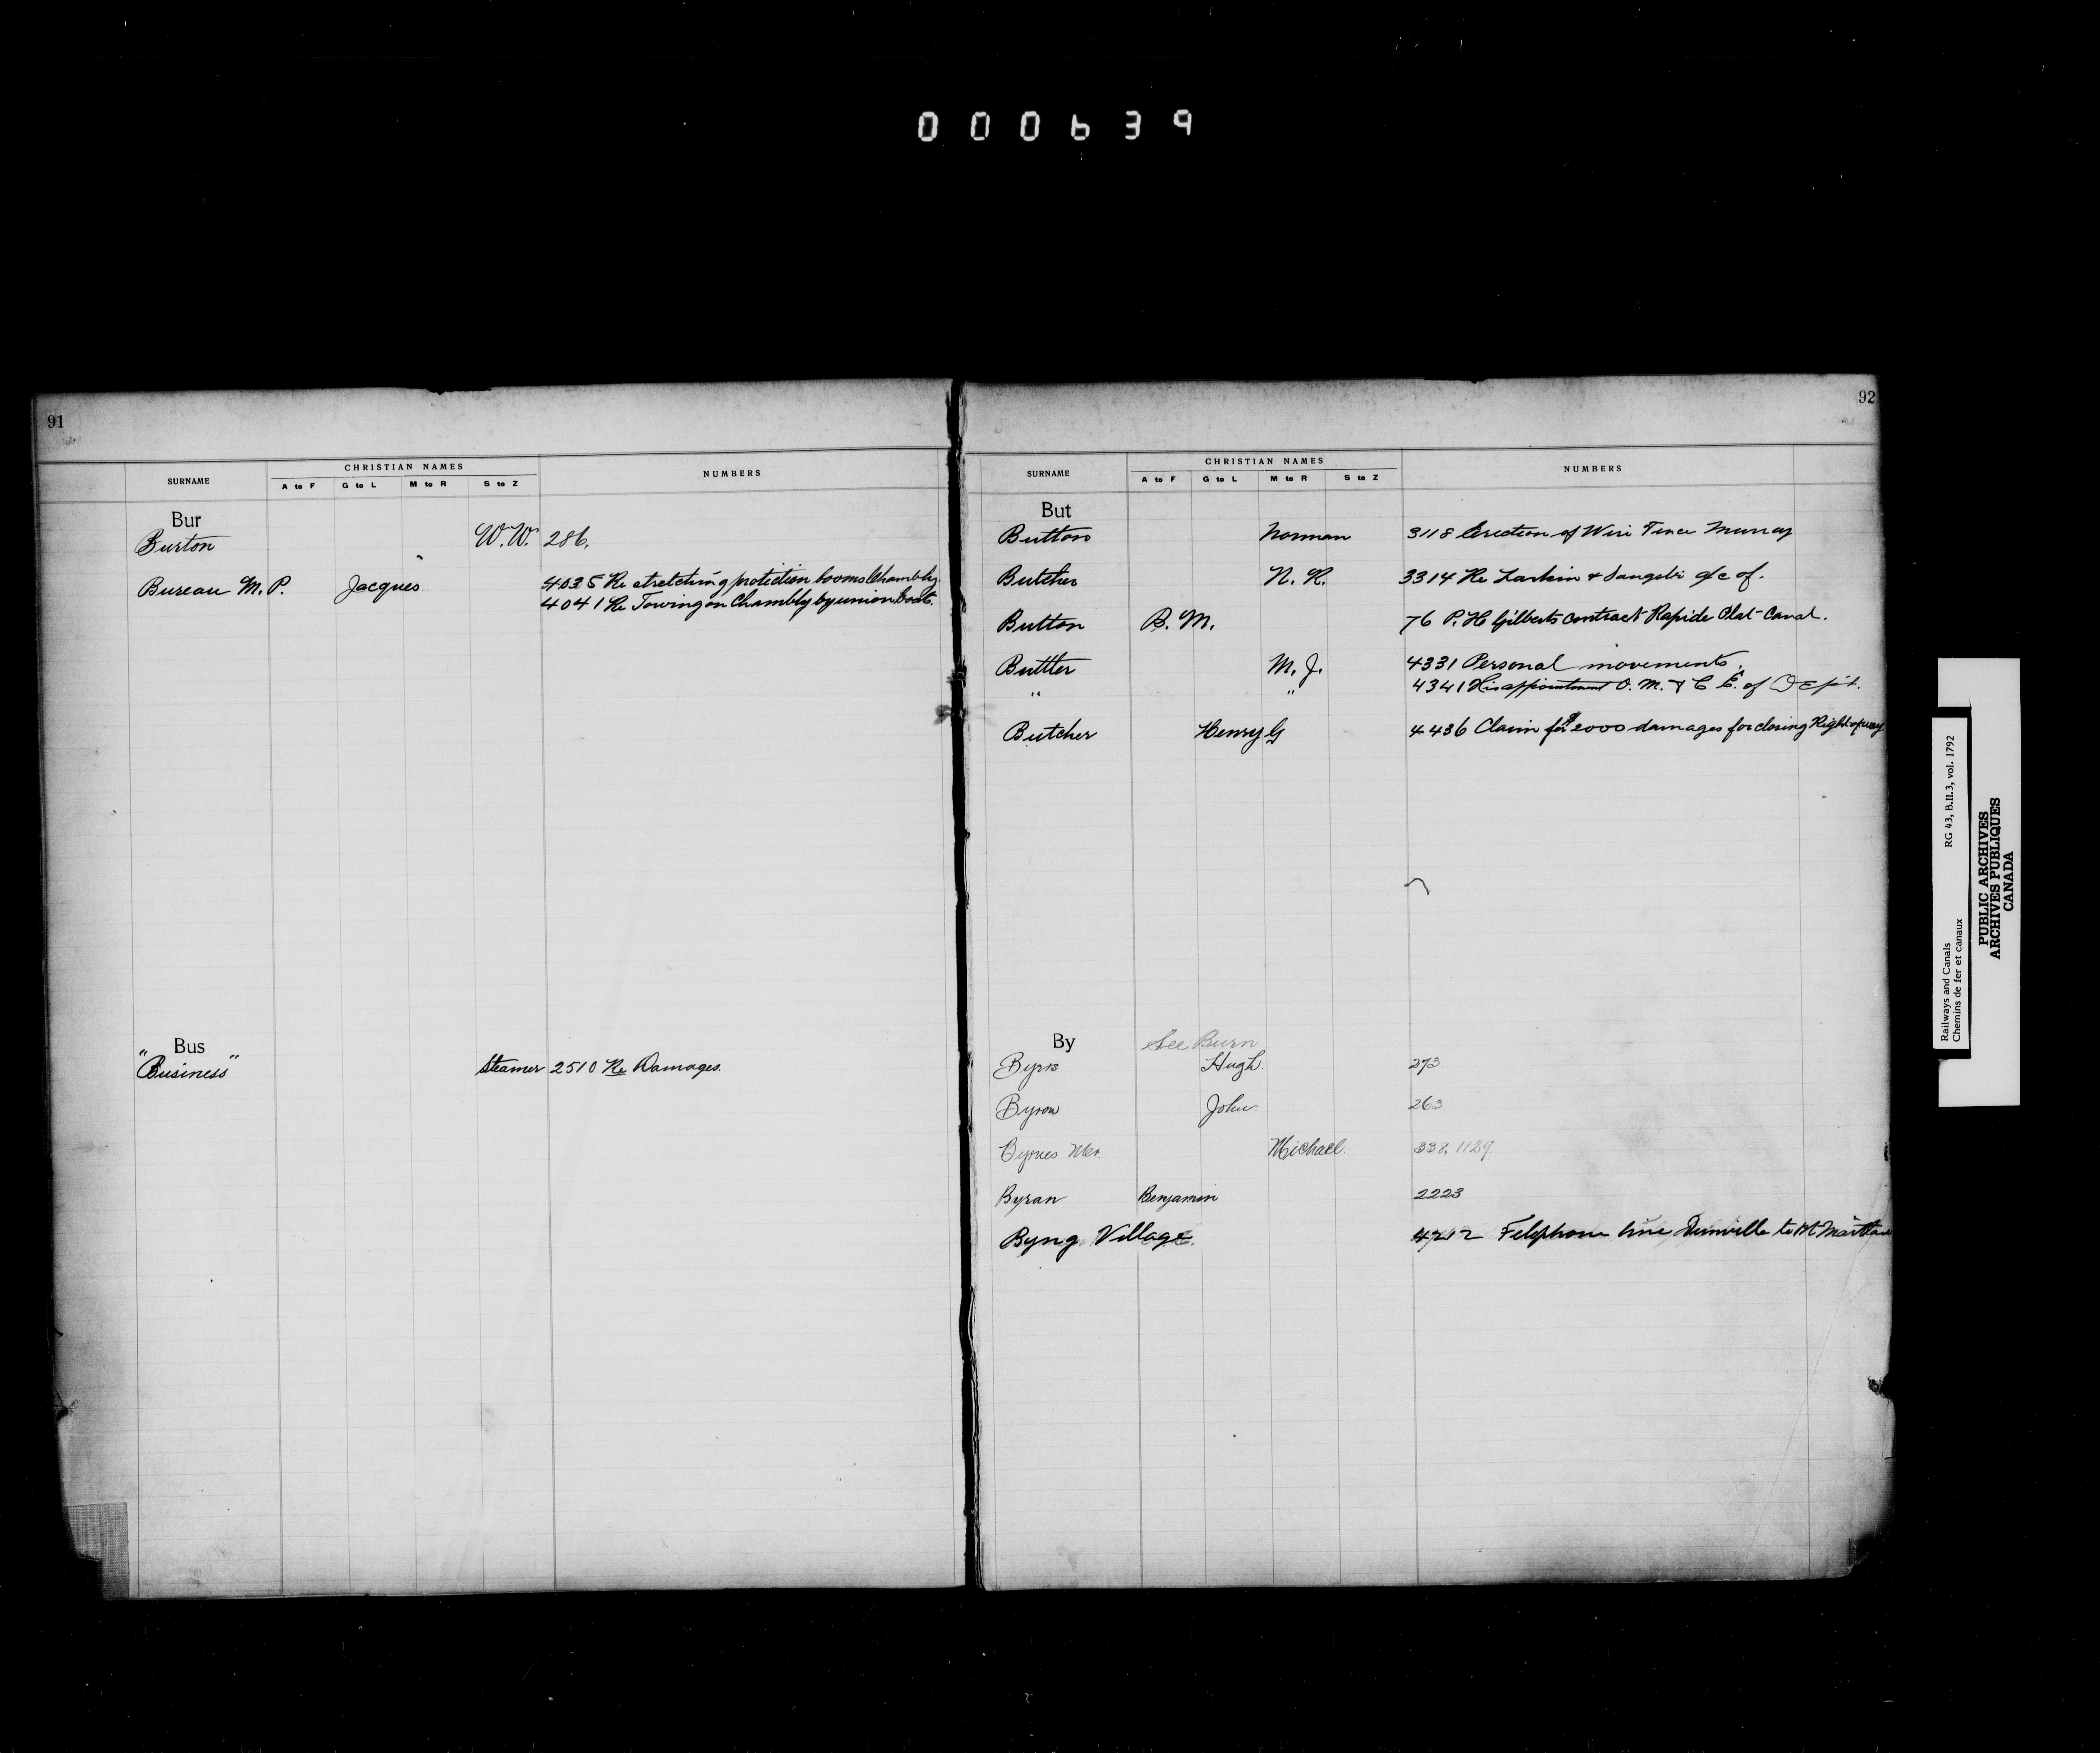 000639
91
SURNAME CHRISTIAN NAMES NUMBERS
A to F G to L M to R S to Z
Bur
Burton W. W. 286.
Bureau M.P. Jacques 4035 Re stretching protection booms Chambly.
4041 Re Towing on Chambly by union boats.
Bus
"Business" Steamer 2510 Re Damages.
92
SURNAME CHRISTIAN NAMES NUMBERS
A to F G to L M to R S to Z
But
Button Norman 3118 Erection of Wire Fence Murray
Butcher N. R. 3314 Re Larkin & Sangster a/c of.
Button B. M. 76 P. H Gilberts contract Rapide Plat Canal.
Buttler M. J. 4331 Personal movements.
" " 4341 His appointment D. M. & C E. of Dept.
Butcher Henry G 4436 Claim for $2000 damages for closing Right of way
By See Burn
Byrs Hugh 273
Byron John 263
Byrnes Mr. Michael. 338, 1129
Byran Benjamin 2223
Byng Village. 4212 Telephone line Dunnville to Pt Maitland
Railways and Canals RG 43, B.II.3, vol. 1792
Chemins de fer et canaux
PUBLIC ARCHIVES
ARCHIVES PUBLIQUES
CANADA